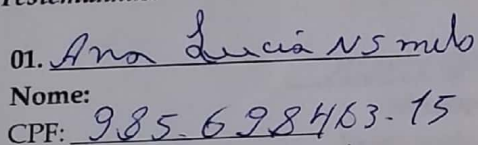 01. Ana Lucia NS melo
Nome:
CPF: 985.698463-15